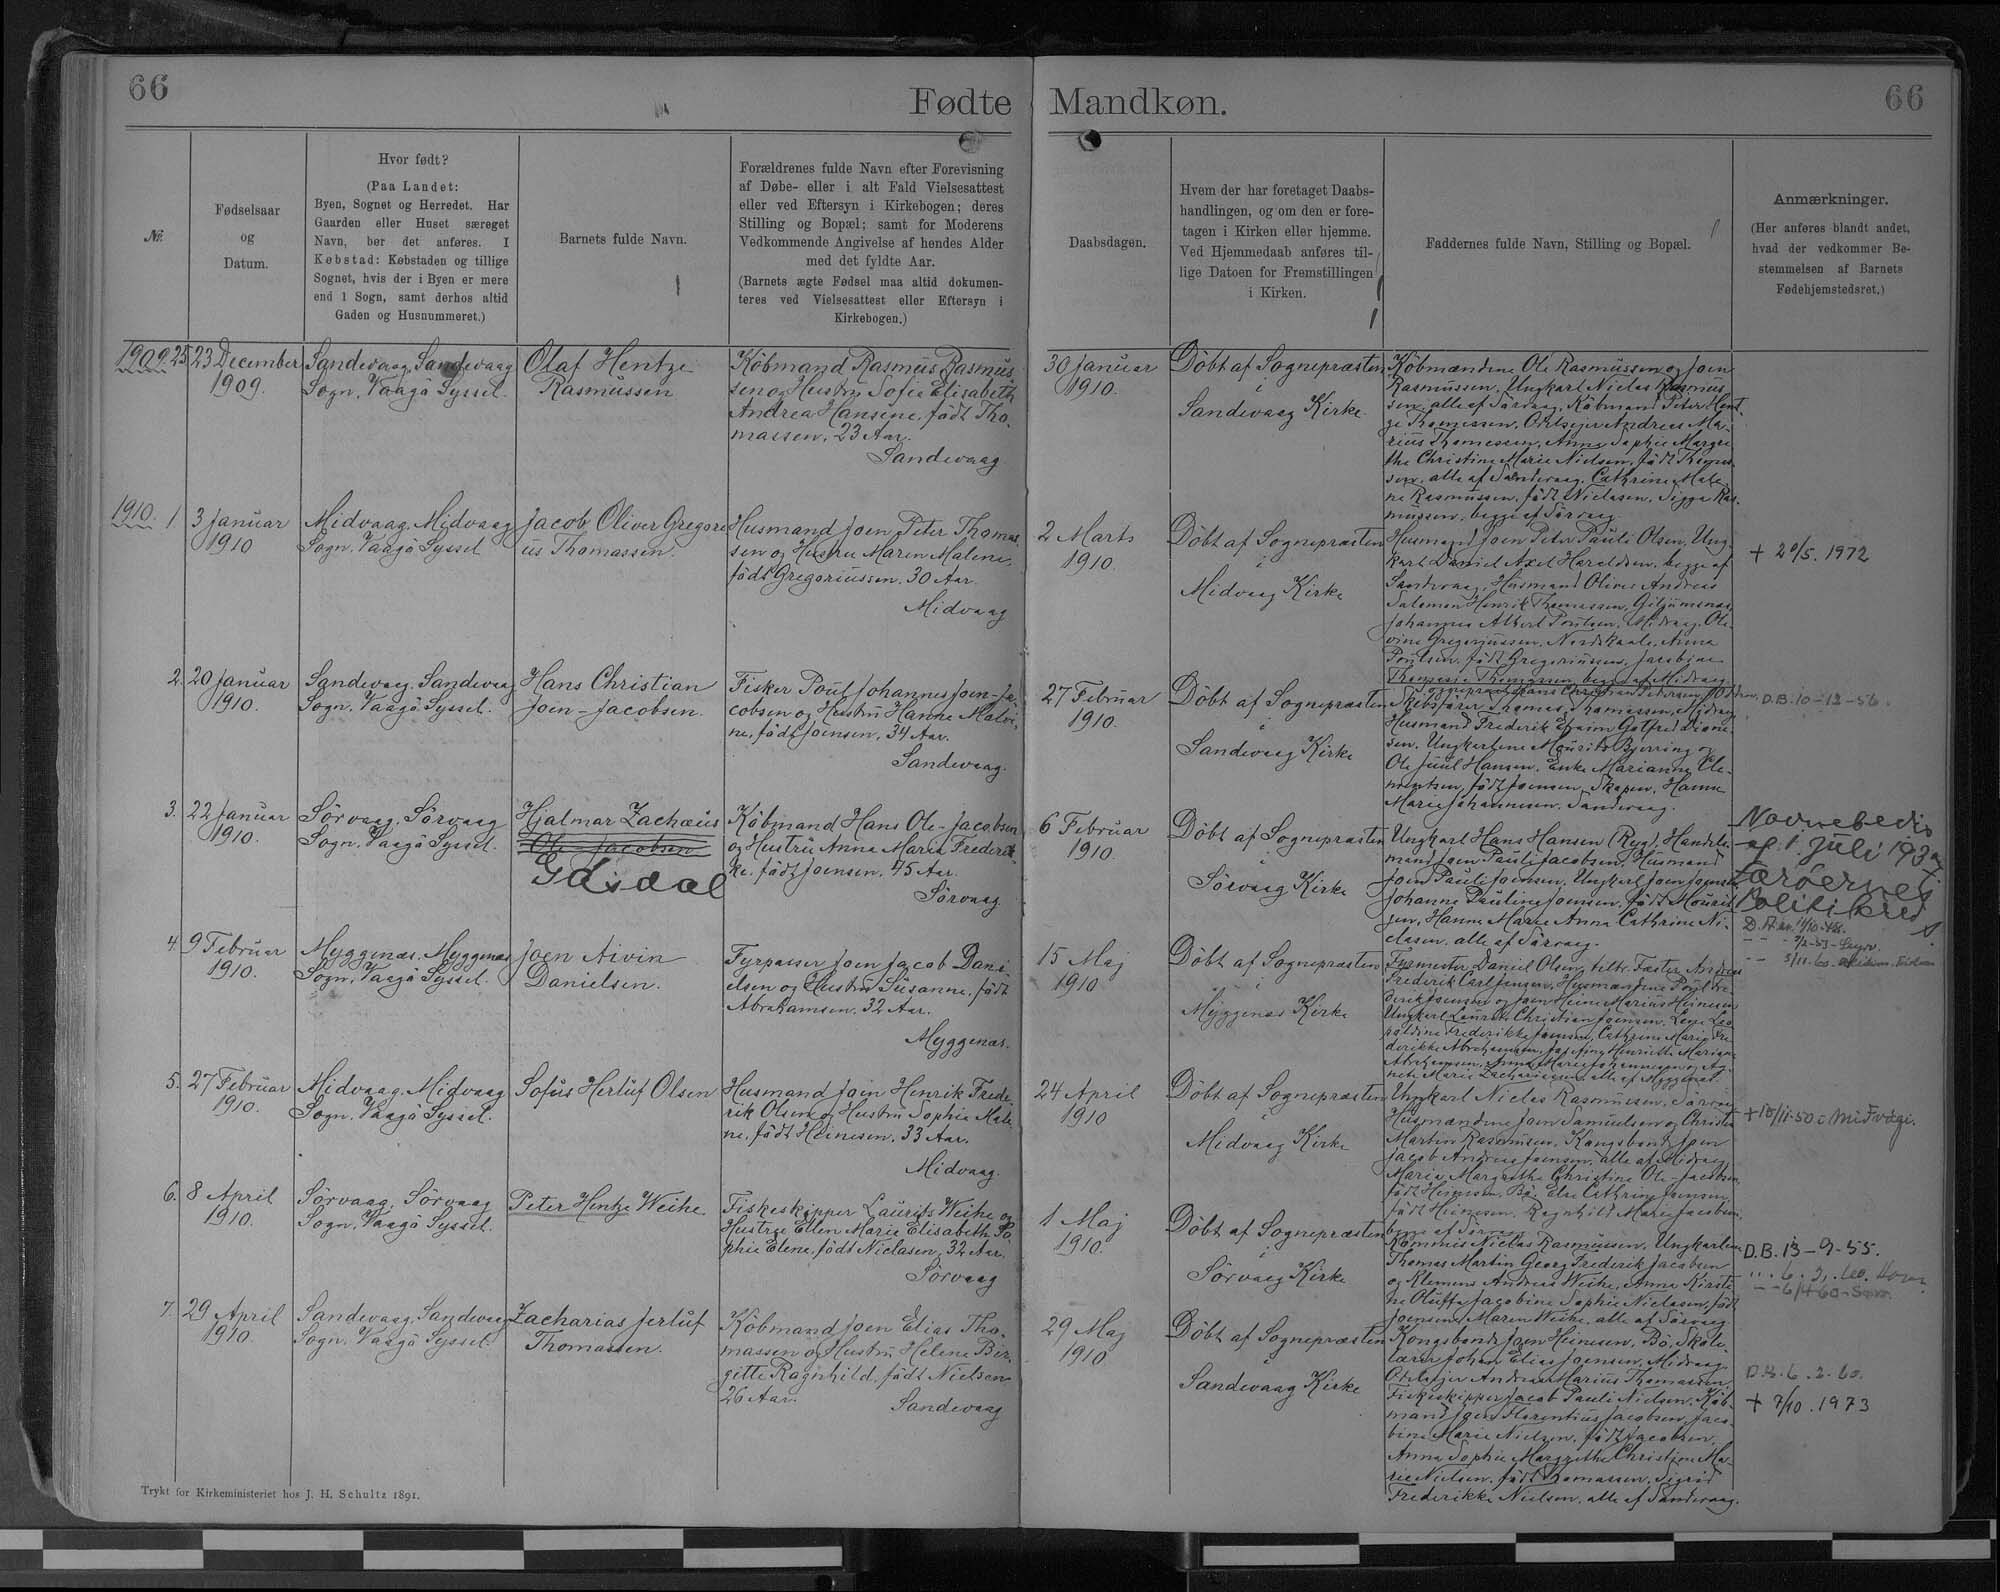 66
Fødte
Mandkøn.
66
Nr.
Fødselsaar
og
Datum.
Hvor født?
(Paa Landet:
Byen, Sognet og Herredet. Har
Gaarden eller Huset særeget
Navn, bør det anføres. I
Købstad: Købstaden og tillige
Sognet, hvis der i Byen er mere
end 1 Sogn, samt derhos altid
Gaden og Husnummeret.)
Barnets fulde Navn.
Forældrenes fulde Navn efter Forevisning
af Døbe- eller i alt Fald Vielsesattest
eller ved Eftersyn i Kirkebogen; deres
Stilling og Bopæl; samt for Moderens
Vedkommende Angivelse af hendes Alder
med det fyldte Aar.
(Barnets ægte Fødsel maa altid dokumen-
teres ved Vielsesattest eller Eftersyn i
Kirkebogen.)
Daabsdagen.
Hvem der har foretaget Daabs-
handlingen, og om den er fore-
tagen i Kirken eller hjemme.
Ved Hjemmedaab anføres til-
lige Datoen for Fremstillingen
i Kirken.
Faddernes fulde Navn, Stilling og Bopæl.
Anmærkninger.
(Her anføres blandt andet,
hvad der vedkommer Be-
stemmelsen af Barnets
Fødehjemstedsret.)
1909. 25
23 December
1909.
Sandevaag, Sandevaag
Sogn, Vaagö Syssel.
Olaf Hentze
Rasmussen
Köbmand Rasmus Rasmus
sen og Hustru Sofie Elisabeth
Andrea Hansine, födt Tho-
massen, 23 Aar.
Sandevaag
30 Januar
1910.
Döbt af Sognepræsten
i
Sandevaag Kirke
Köbmændene Ole Rasmussen og Joen
Rasmussen, Ungkarl Niclas Rasmus
sen, alle af Sörvaag, Köbmand Peter Hent-
ze Thomassen, Andreas Ma-
rius Thomassen, Anna Sophie Margre
the Christine Marie Nielsen, födt Thomas
sen, alle af Sandevaag, Cathrine Male-
ne Rasmussen, födt Niclasen, Sigga Ras-
mussen, begge af Sörvaag.
1910. 1
3 Januar
1910
Midvaag, Midvaag
Sogn, Vaagö Syssel
Jacob Oliver Gregori
us Thomassen.
Husmand Joen Peter Thomas
sen og Hustru Maren Malene,
födt Gregoriussen, 30 Aar.
Midvaag
2 Marts
1910.
Döbt af Sognepræsten
i
Midvaag Kirke
Husmand Joen Peter Pauli Olsen, Ung
karl Daniel Axel Haraldsen, begge af
Sandevaag, Husmand Oliver Andreas
Salomon Henrik Thomassen,
Johannes Albert Poulsen, Midvaag, Ole-
vine Gregoriussen, Anna
Poulsen, födt Gregoriussen, Jacobine
Thomasia Thomassen, begge af Midvaag.
+ 20/5. 1972
2.
20 Januar
1910.
Sandevaag, Sandevaag
Sogn, Vaagö Syssel.
Hans Christian
Joen-Jacobsen.
Fisker Poul Johannes Joen-Ja-
cobsen og Hustru Hanne Malvi-
ne, födt Joensen, 34 Aar.
Sandevaag.
27 Februar
1910.
Döbt af Sognepræsten
i
Sandevaag Kirke
Sognepræst Hans Christian
Skibsförer Thomas Thomassen, Midvaag
Husmand Frederik Efraim Gotfred
sen, Ungkarlene Mourits Bjerring og
Ole Juul Hansen, Enke Marianne Cle-
mentsen, födt Joensen, Hanne
Marie Johannesen, Sandevaag.
D.B. 10-12-56.
3.
22 Januar
1910.
Sörvaag, Sörvaag
Sogn, Vaagö Syssel.
Hjalmar Zachæus
Ole-Jacobsen
Gásdal
Köbmand Hans Ole-Jacobsen
og Hustru Anna Maria Frederik
ke, födt Joensen, 45 Aar.
Sörvaag
6 Februar
1910.
Döbt af Sognepræsten
i
Sörvaag Kirke
Ungkarl Hans Hansen (Ryg), Handels-
mand Joen Pauli Jacobsen, Husmand
Joen Pauli Joensen, Ungkarl Joen Joensen
Johanne Pauline Joensen, födt Mourit
sen, Hanne Marie Anna Cathrine Ni-
clasen, alle af Sörvaag.
Navnebevis
af 1. Juli 193
Færøernes
Politikred
s.
4.
9 Februar
1910.
Myggenæs, Myggenæs
Sogn, Vaagö Syssel.
Joen Aivin
Danielsen.
Fyrpasser Joen Jacob Dani
elsen og Hustru Susanne, födt
Abrahamsen, 32 Aar.
Myggenæs.
15 Maj
1910
Döbt af Sognepræsten
i
Myggenæs Kirke
Fyrmester Daniel Olsen, Fæster Andreas
Frederik Carl Jensen, Husmændene Poul Fre-
derik Joensen og Joen Heine Marius Heinesen
Ungkarl Laurits Christian Joensen, Lene Leo
poldine Frederikke Joensen, Cathrine Marie Fre
derikke Abrahamsen, Josefine Henriette Mariane
Abrahamsen, Anna Marie Johannesen og Ag-
nete Marie Zachariasen, alle af Myggenæs.
5.
27 Februar
1910.
Midvaag, Midvaag
Sogn, Vaagö Syssel.
Sofus Herluf Olsen
Husmand Joen Henrik Frede
rik Olsen og Hustru Sophie Male
ne, födt Heinesen, 33 Aar.
Midvaag.
24 April
1910
Döbt af Sognepræsten
i
Midvaag Kirke
Ungkarl Niclas Rasmussen, Sörvaag
Husmændene Joen Samuelsen og Christen
Martin Rasmussen, Kongsbonde Joen
Jacob Andreas Joensen, alle af Midvaag
Maria Margrethe Christine Ole-Jacobsen,
födt Heinesen, Bö, Else Cathrine Joensen
födt Heinesen, Ragnhild Marie Jacobsen,
begge af Sörvaag
+ 18/11-50 i Miðvági.
6.
8 April
1910.
Sörvaag, Sörvaag
Sogn, Vaagö Syssel.
Peter Hentze Weihe
Fiskeskipper Laurits Weihe og
Hustru Ellen Marie Elisabeth So
phie Elene, födt Niclasen, 32 Aar.
Sörvaag
1 Maj
1910.
Döbt af Sognepræsten
i
Sörvaag Kirke
Kommis Niclas Rasmussen, Ungkarlene
Thomas Martin Georg Frederik Jacobsen
og Klemens Andreas Weihe, Anna Kirsti
ne Oluffa Jacobine Sophie Niclasen, födt
Joensen, Maren Weihe, alle af Sörvaag
D.B. 13-9-55.
7.
29 April
1910.
Sandevaag, Sandevaag
Sogn, Vaagö Syssel.
Zacharias Jerluf
Thomassen.
Köbmand Joen Elias Tho-
massen og Hustru Helene Bir-
gitte Ragnhild, födt Nielsen
26 Aar.
Sandevaag
29 Maj
1910
Döbt af Sognepræsten
i
Sandevaag Kirke
Kongsbonde Joen Heinesen, Bö, Skole-
lærer Johan Elias Joensen, Midvaag
Andreas Marius Thomassen
Fiskeskipper Jacob Pauli Nielsen, Köb-
mand Joen Florentius Jacobsen, Jaco-
bine Marie Nielsen, födt Jacobsen,
Anna Sophie Margrethe Christine Ma-
rie Nielsen, födt Thomassen, Sigrid
Frederikke Nielsen, alle af Sandevaag.
D.B. 6.2.60.
+ 7/10. 1973
Trykt for Kirkeministeriet hos J. H. Schultz 1891.